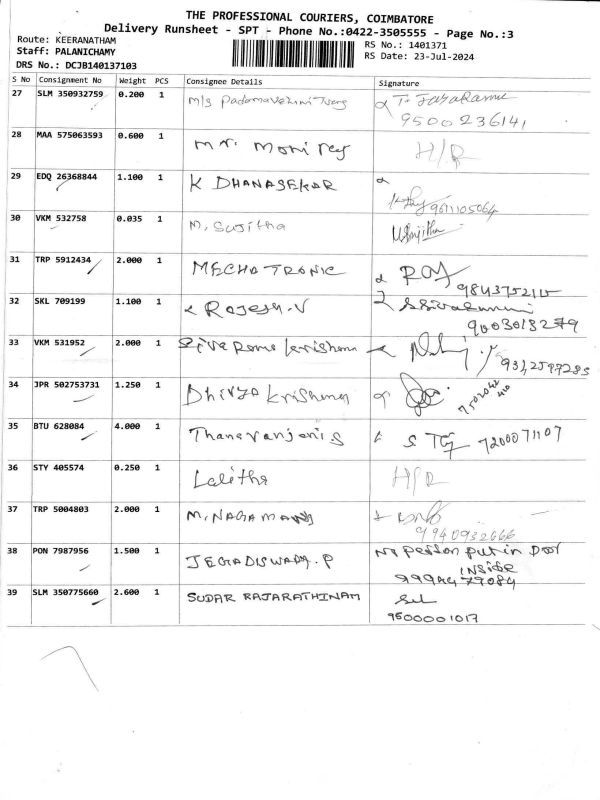 THE PROFESSIONAL COURIERS, COIMBATORE
Delivery Runsheet - SPT - Phone No.:0422-3505555 - Page No.:3
Route: KEERANATHAM
Staff: PALANICHAMY
DRS No.: DCJB140137103
RS No.: 1401371
RS Date: 23-Jul-2024
S No Consignment No Weight PCS Consignee Details Signature
27 SLM 350932759 0.200 1 M/s
9500236141
28 MAA 575063593 0.600 1 H/R
29 EDQ 26368844 1.100 1 K DHANASEKAR
9611105064
30 VKM 532758 0.035 1 M. Sujitha
31 TRP 5912434 2.000 1 MECHATRONIC
32 SKL 709199 1.100 1 Rajesh.V
9003013279
33 VKM 531952 2.000 1 Siva Rama krishnan
34 JPR 502753731 1.250 1 Dhivya Krishnan
35 BTU 628084 4.000 1 7200071107
36 STY 405574 0.250 1 Lalitha H/R
37 TRP 5004803 2.000 1 M. NAGAMANI
9940932666
38 PON 7987956 1.500 1 JEGADISWARI.P No person put in Door
INSIDE
9994477084
39 SLM 350775660 2.600 1 SUDAR RAJARATHINAM
9500001017